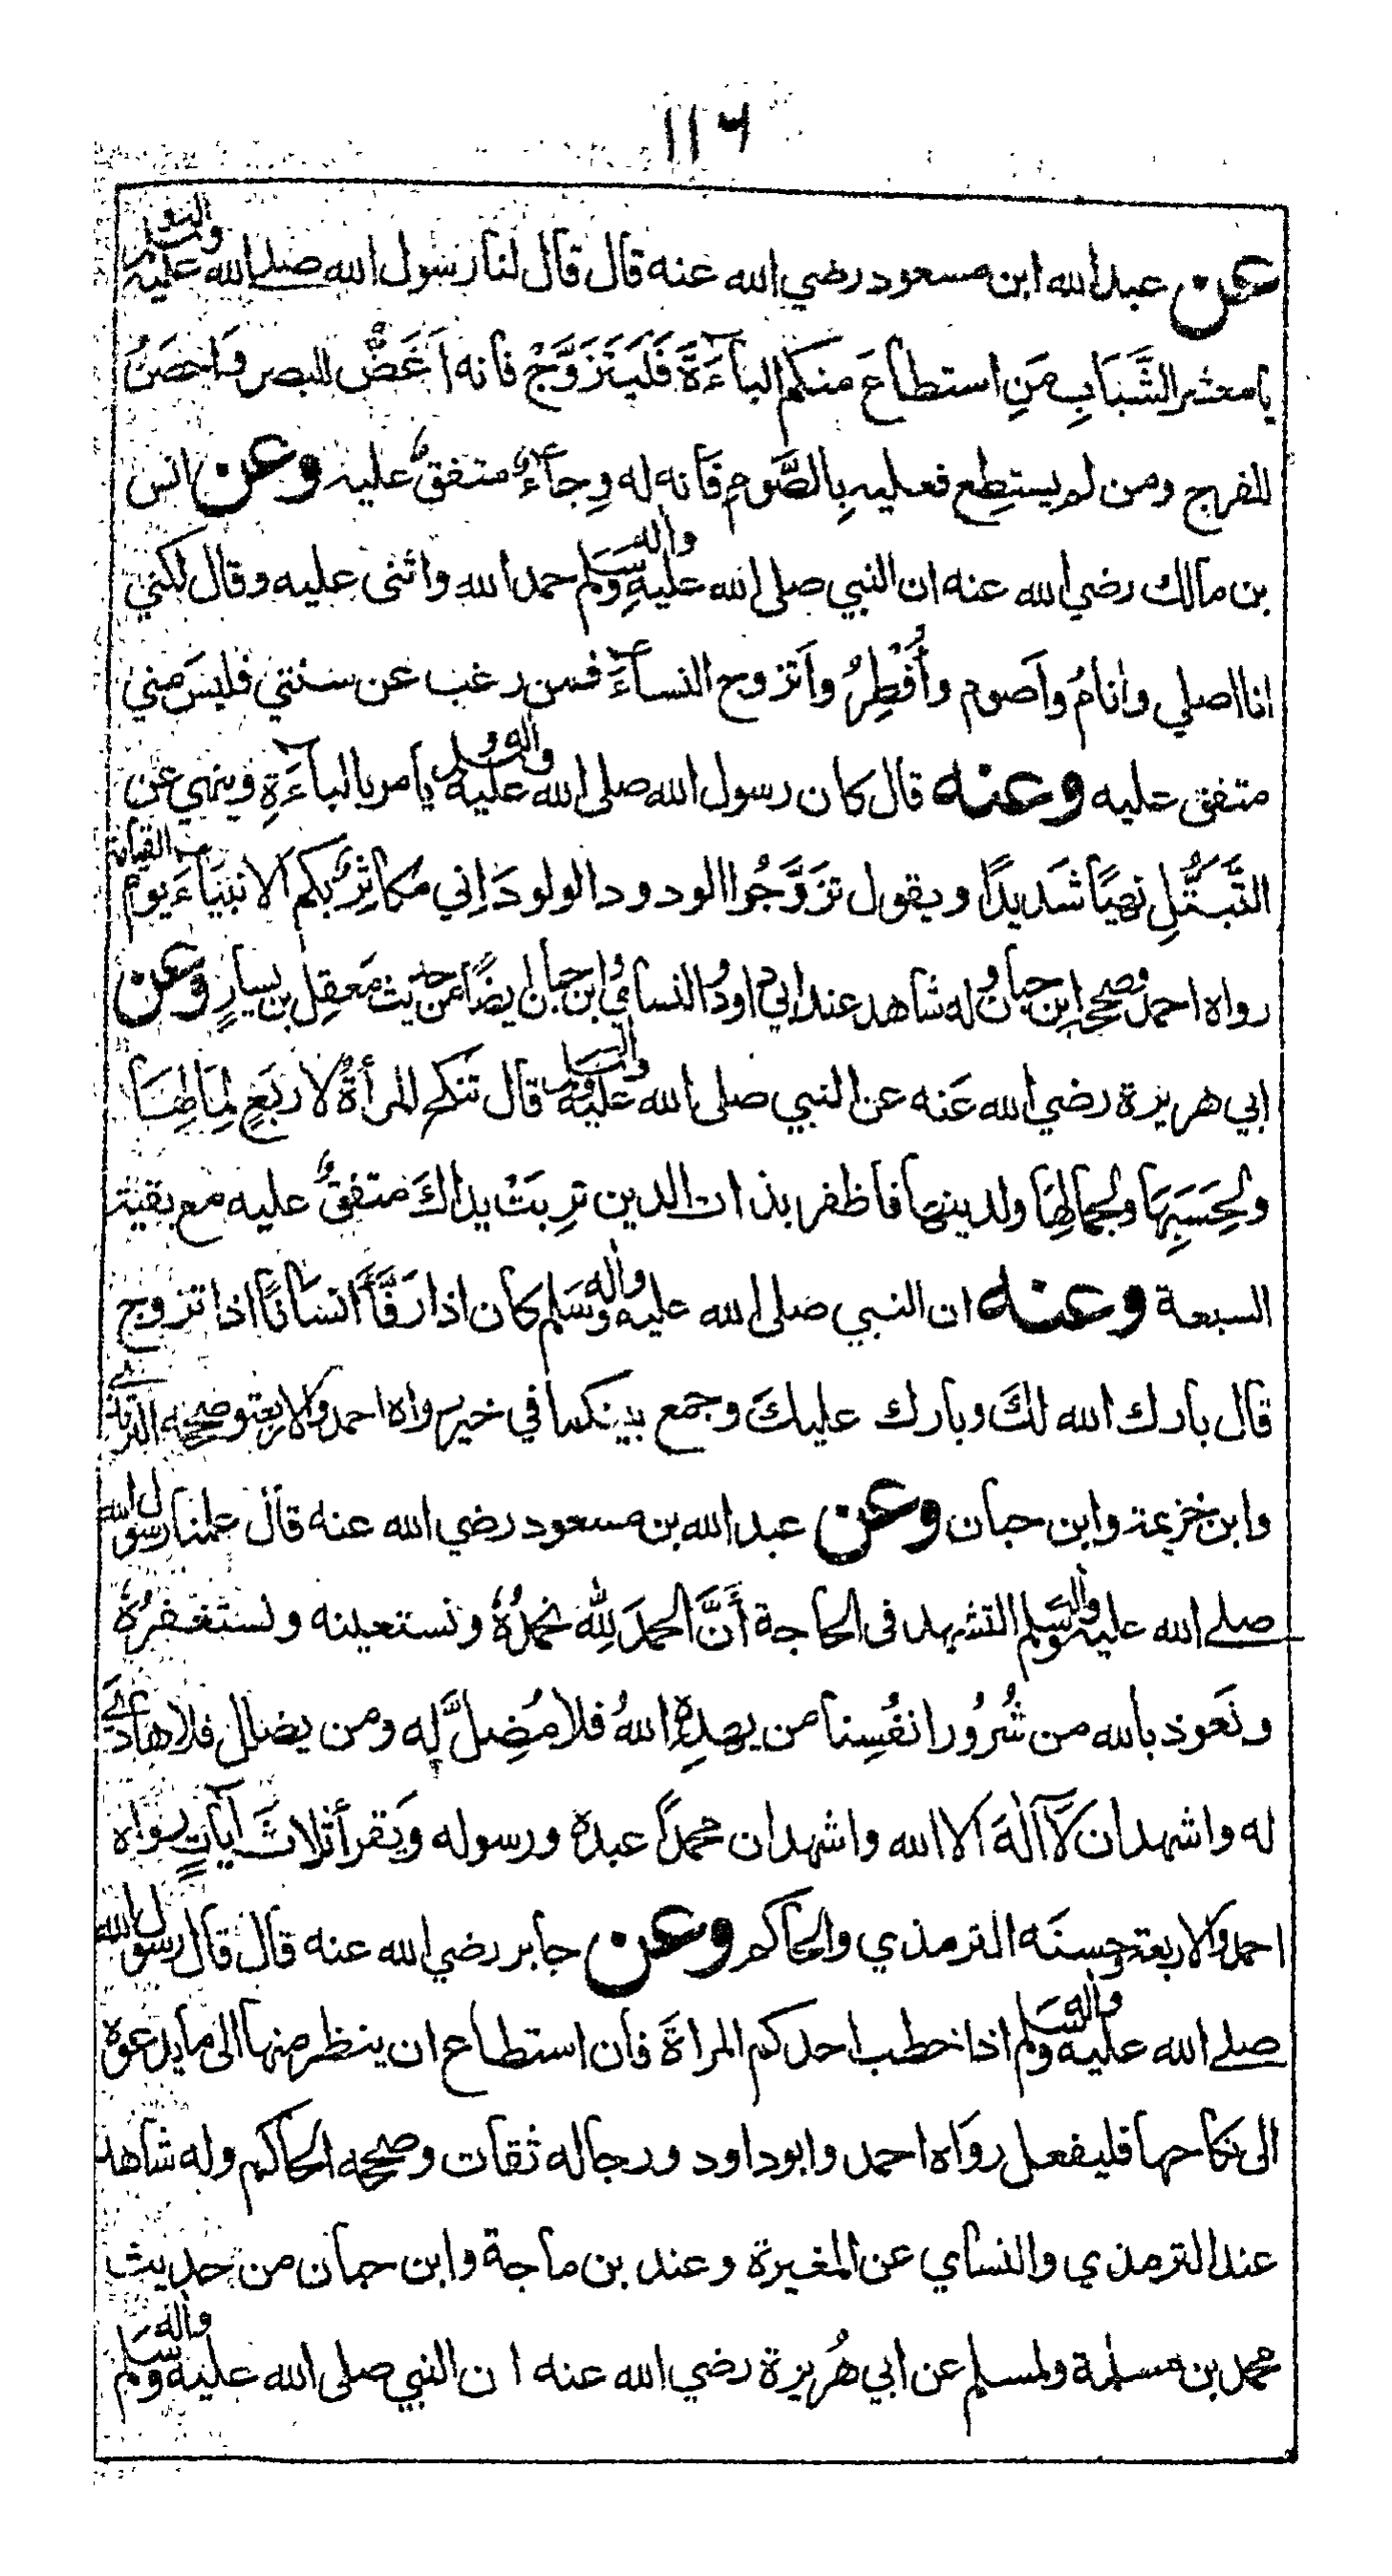 ١١٦
عن عبد الله ابن مسعود رضي الله عنه قال قال لنا رسول الله صلے الله عليه واله وسلم
يا معشر الشَّبَابِ مَنِ استطاعَ منكم الباۤءَةَ فَليَتَزَوَّجْ فانه اَغَضُّ للبصر وَاحصَنُ
للفرج ومن لم يستطِع فعليه بِالصَّومِ فَانه له وِجاۤءٌ متفقٌ عليه وعن انس
بن مالك رضي الله عنه ان النبي صلى الله عليهِ واله وسَلم حمد الله واثنى عليه وقال لكني
انا اصلي وانامُ واَصوم وأُفْطِرُ واَتزوج النساۤءَ فمن رغب عن سنتي فليسَ مني
متفق عليه وعنه قال كان رسول الله صلى الله عليه واله وسلم يأمر بالباۤءَةِ وينهي عن
التَّبَتُّلِ نهيًا شَديدًا ويقول تزَوَّجُوا الودود الولودَ اِني مكاثِرٌ بكم الانبيَاءَ يوم القيامة
رواه احمد وصححه ابن حبان وله شاهد عند ابي داود والنسائي وابن حبان ايضًا من حديث مَعقِل بن يسارٍ وعن
ابي هريرة رضي الله عَنه عن النبي صلى الله عليه واله وسلم قال تنكح المرأةُ لاربَعٍ لِمَالِهَا
ولِحَسَبِهَا ولجمالِهَا ولدينها فاظفر بذات الدين ترِبَتْ يداكَ متفقٌ عليه مع بقية
السبعة وعنه ان النبي صلى الله عليه واله وسَلم كان اذا رَفَّأَ انسَانًا اذا تزوج
قال بارك الله لكَ وبارك عليكَ وجمع بينكما في خير رواه احمد والاربعة وصححه الترمذي
وابن خزيمة وابن حبان وعن عبد الله بن مسعود رضي الله عنه قال علمنا رسول الله
صلے الله عليه واله وسلم التشهد فى الحاجة أَنَّ الحمدَ للهِ نحمدُهُ ونستعينه ونستغفرُهُ
ونَعوذ بالله من شُرُور انفُسِنا من يهدِهِ اللهُ فلا مُضِلَّ له ومن يضلل فلا هادي
له واشهد ان لَّاۤ اِلٰهَ الا الله واشهد ان محمدًا عبده ورسوله ويَقرأ ثلاثَ آياتٍ رواه
احمد والاربعة وحسنَه الترمذي والحاكم وعن جابر رضي الله عنه قال قال رسول الله
صلے الله عليه واله وسَلم اذا خطب احدكم المراةَ فان استطاع ان ينظر منها الى ما يدعوه
الى نكاحها فليفعل رواه احمد وابو داود ورجاله ثقات وصححه الحاكم وله شاهد
عند الترمذي والنساي عن المغيرة وعند بن ماجة وابن حبان من حديث
محمد بن مسلمة ولمسلم عن ابي هُريرة رضي الله عنه ان النبي صلى الله عليه واله وسَلم